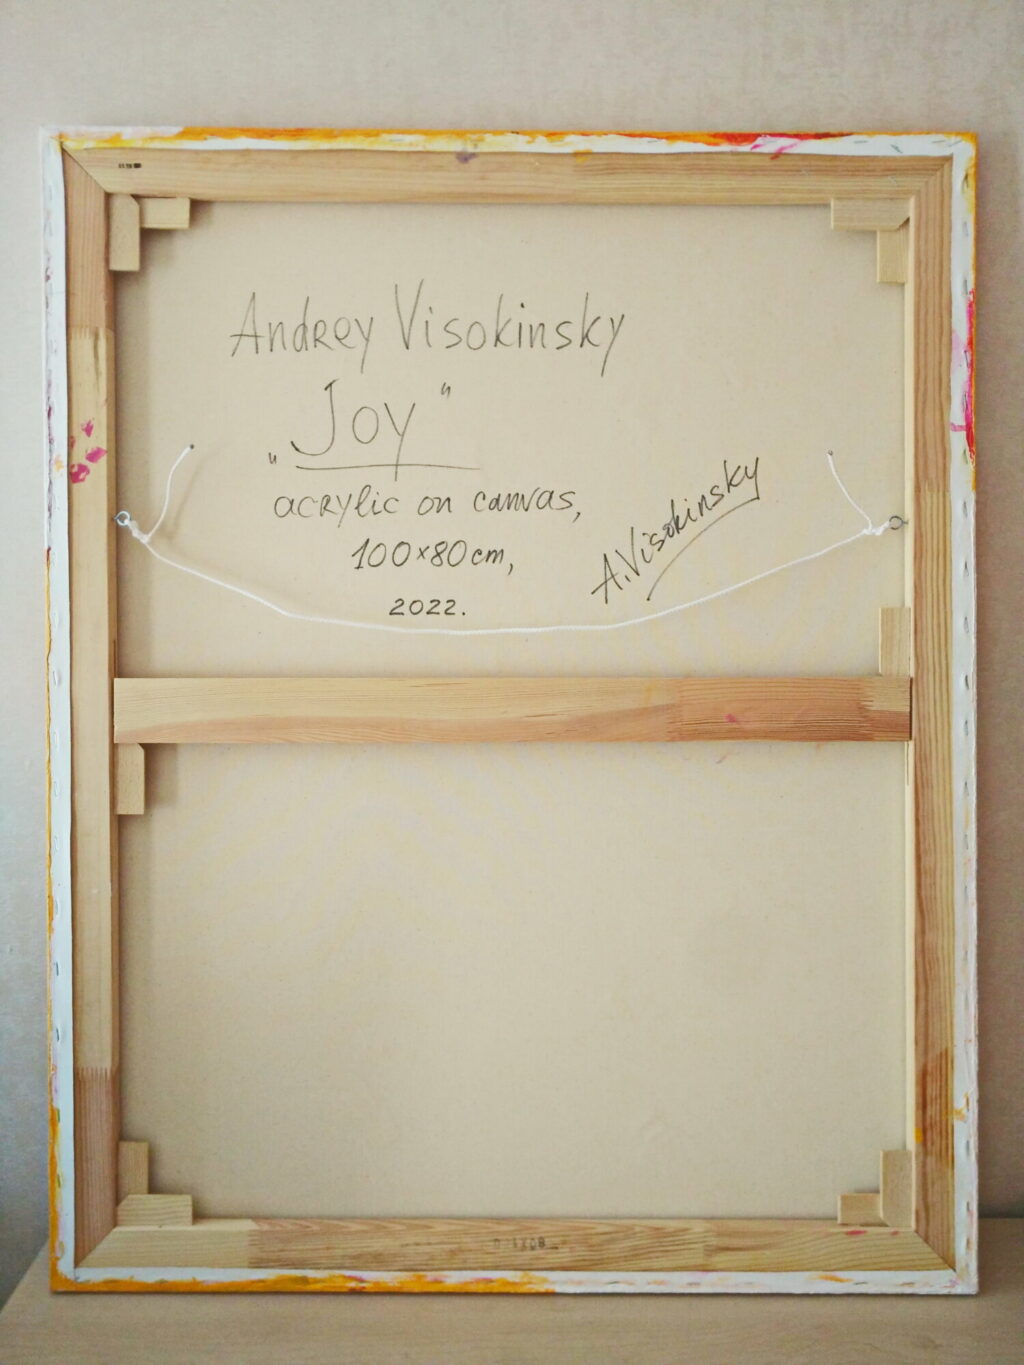 Andrey Visokinsky
„Joy"
acrylic on canvas,
100x80cm,
2022.
A.Visokinsky